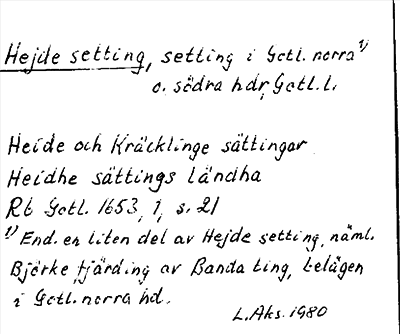 Hejde setting, setting i Gotl. norra 1)
o. södra hdr, Gotl. l.
Heide och Kräcklinge sättingar
Heidhe sättings ländha
Rb Gotl. 1653, 1, s. 21
1) End. en liten del av Hejde setting, näml.
Björke fjärding av Banda ting, belägen
i Gotl. norra hd.
L. Aks. 1980